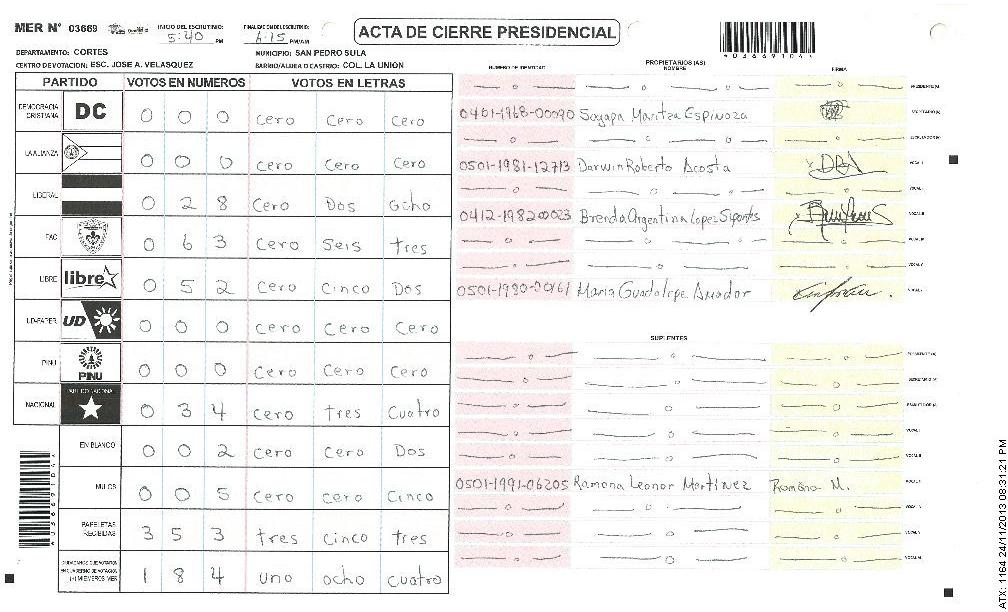 MER Nº 03669
INICIO DEL ESCRUTINIO: 5:40 PM
FINALIZACION DEL ESCRUTINIO: 6:15 PM/AM
ACTA DE CIERRE PRESIDENCIAL
DEPARTAMENTO: CORTES
MUNICIPIO: SAN PEDRO SULA
CENTRO DE VOTACION: ESC. JOSE A. VELASQUEZ
BARRIO/ALDEA O CASERIO: COL. LA UNION
PARTIDO VOTOS EN NUMEROS VOTOS EN LETRAS
DEMOCRACIA CRISTIANA DC 0 0 0 cero cero cero
LA ALIANZA 0 0 0 cero cero cero
LIBERAL 0 2 8 cero Dos Ocho
PAC 0 6 3 cero seis tres
LIBRE libre 0 5 2 cero cinco Dos
UD-FAPER UD 0 0 0 cero cero cero
PINU PINU 0 0 0 cero cero cero
NACIONAL PARTIDO NACIONAL 0 3 4 cero tres cuatro
EN BLANCO 0 0 2 cero cero Dos
NULOS 0 0 5 cero cero cinco
PAPELETAS RECIBIDAS 3 5 3 tres cinco tres
CIUDADANOS QUE VOTARON EN CUADERNO DE VOTACION (+) MIEMBROS MER 1 8 4 uno ocho cuatro
PROPIETARIOS (AS)
NUMERO DE IDENTIDAD NOMBRE FIRMA
PRESIDENTE (A)
0401-1968-00090 Soyapa Maritza Espinoza SECRETARIO (A)
ESCRUTADOR (A)
0501-1981-12713 Darwin Roberto Acosta VOCAL I
0412-1982-00023 Brenda Argentina Lopez VOCAL
0501-1980-00161 Maria Guadalupe Amador VOCAL
SUPLENTES
PRESIDENTE (A)
SECRETARIO (A)
ESCRUTADOR (A)
VOCAL I
VOCAL II
0501-1991-06205 Ramona Leonor Martinez Ramona M. VOCAL
VOCAL
VOCAL
VOCAL
ATX: 1164 24/11/2013 08:31:21 PM